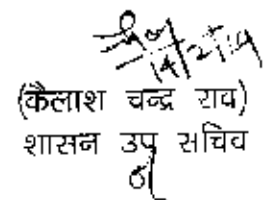 (कैलाश चन्द्र राव)
शासन उप सचिव